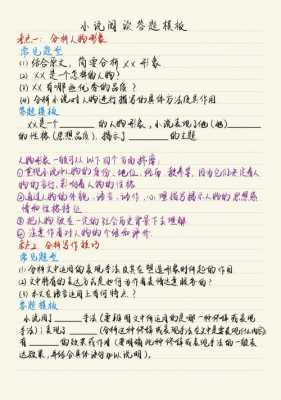 小说阅读答题模板
考点一：分析人物形象
常见题型
(1) 结合原文，简要分析 XX 形象
(2) XX 是个怎样的人物？
(3) XX 有哪些优秀的品质？
(4) 分析小说对人物进行描写的具体方法及其作用
答题模板
XX是一个____的人物形象，小说表现了他(她)____
的性格(思想品质)，揭示了____的主题
人物形象一般可从以下四个方面捕捉：
①重视小说中人物的身份、地位、经历、教养、
人物的言行，影响着人物的性格
②通过人物的外貌、语言、动作、心理描写揭示人物的思想感
情和性格特征
③把人物放在一定的社会历史背景下去理解
④注意作者对人物的介绍和评价
考点2 分析写作技巧
常见题型
(1) 分析文中运用的表现手法及其在塑造形象时所起的作用
(2) 文中特有的表达方式是如何为作者表情达意服务的？
(3) 本文在语言运用上有何特点？
答题模板
小说用了____手法(要明确文中所运用的是哪一种修辞或表现
手法)；表现了____(分析这种修辞或表现手法在文中是要表现什么内容)
有____的效果或作用(要明确此种修辞或表现手法的一般表
达效果，并结合具体语句加以说明)。